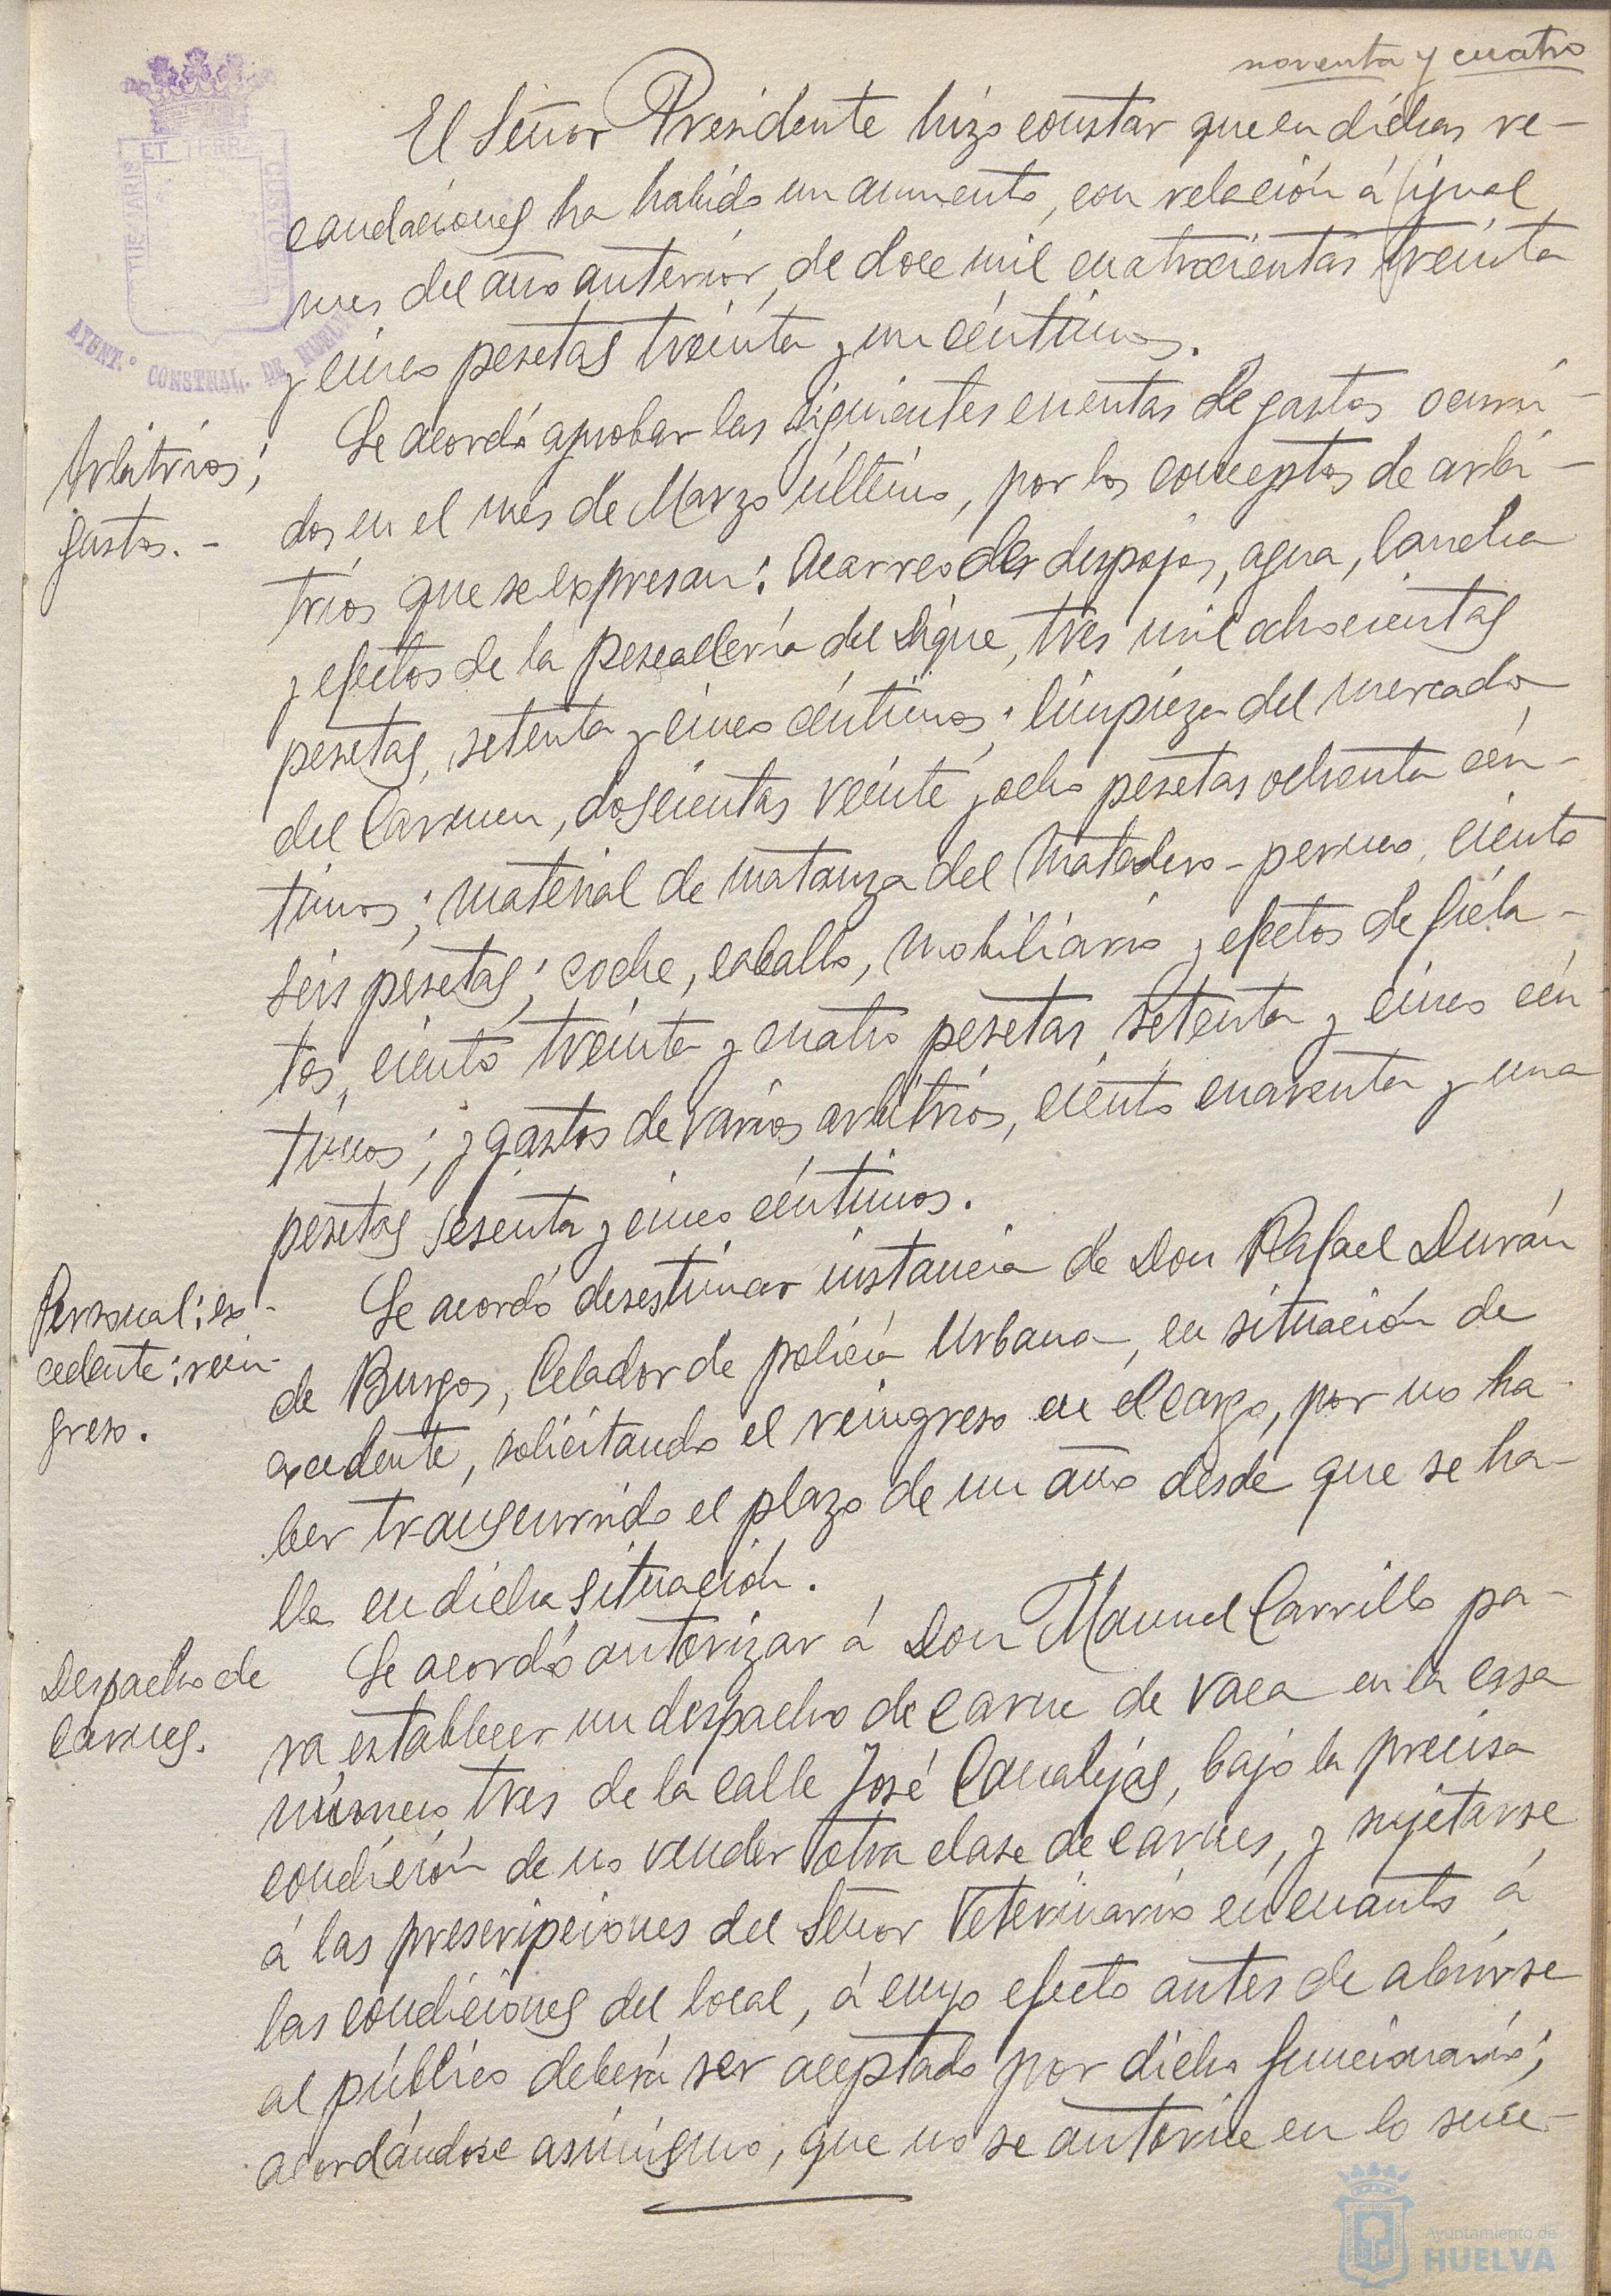 noventa y cuatro
El Señor Presidente hizo constar que en dichas re-
caudaciones ha habido un aumento, con relación á igual
mes del año anterior, de doce mil cuatrocientas treinta
y cinco pesetas treinta y un céntimos.
Arbitrios;
gastos.-
Se acordó aprobar las siguientes cuentas de gastos ocurri-
dos en el mes de Marzo último, por los conceptos de arbi-
trios que se expresan: Acarreo de despojos, agua, lancha
y efectos de la pescadería del Dique, tres mil ochocientas
pesetas, setenta y cinco céntimos; limpieza del mercado
del Carmen, doscientas veinte y ocho pesetas ochenta cén-
timos; material de matanza del Matadero-permeo, ciento
seis pesetas; coche, caballo, mobiliario y efectos de fiela-
tos, ciento treinta y cuatro pesetas setenta y cinco cén
timos; y gastos de varios arbitrios, ciento cuarenta y una
pesetas sesenta y cinco céntimos.
Personal: ex-
cedente: rein-
greso.
Se acordó desestimar instancia de Don Rafael Durán
de Burgos, Celador de policía Urbana, en situación de
excedente, solicitando el reingreso en el cargo, por no ha-
ber transcurrido el plazo de un año desde que se ha-
lla en dicha situación.
Despacho de
carnes.
Se acordó autorizar á Don Manuel Carrillo pa-
ra establecer un despacho de carne de vaca en la casa
número tres de la calle José Canalejas, bajo la precisa
condición de no vender otra clase de carnes, y sujetarse
á las prescripciones del Señor Veterinario en cuanto á
las condiciones del local, á cuyo efecto antes de abrirse
al público deberá ser aceptado por dicho funcionario;
acordándose asimismo, que no se autorice en lo suce-
PORTUS MARIS ET TERRÆ CUSTODIA
AYUNT.º CONSTNAL. DE HUELVA
Ayuntamiento de
HUELVA